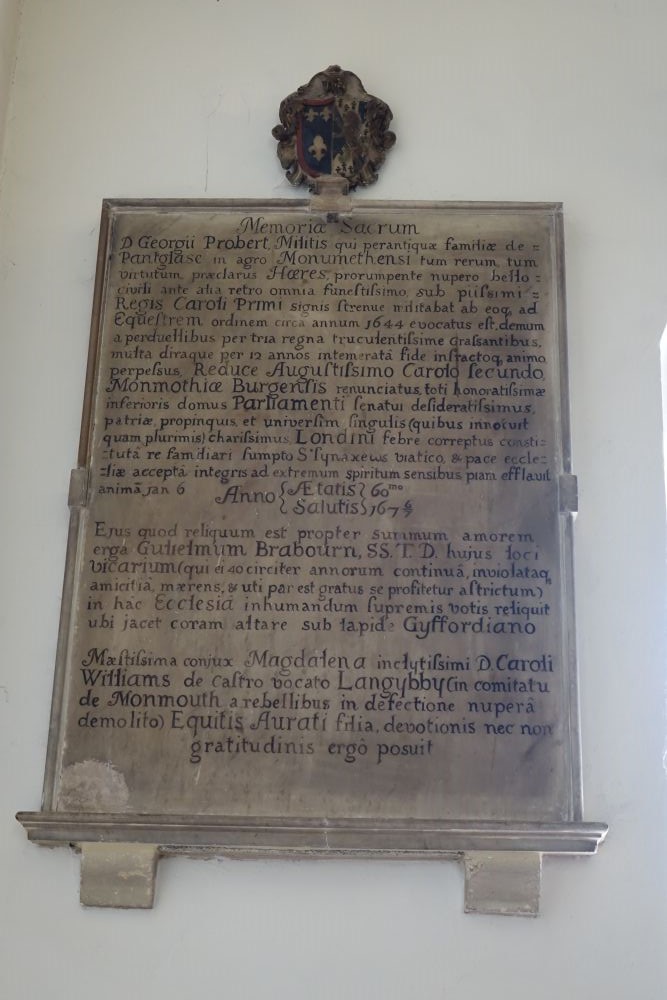 Memoriæ Sacrum
D Georgii Probert, Militis qui perantiquæ familiæ de =
Pantglase in agro Monumethensi tum rerum, tum
virtutum, præclarus Hæres, prorumpente nupero bello :
civili ante alia retro omnia funestissimo, sub piissimi =
Regis Caroli Primi signis strenue militabat ab eoq, ad
Equestrem ordinem circa annum 1644 evocatus est, demum
a perduellibus per tria regna truculentissime grassantibus,
multa diraque per 12 annos intemeratâ fide infractoq, animo
perpessus, Reduce Augustissimo Carolo secundo
Monmothiæ Burgensis renunciatus, toti honoratissimæ
inferioris domus Parliamenti senatui desideratissimus,
patriæ, propinquis, et universim singulis (quibus innotuit
quam plurimis) charissimus, Londini febre correptus consti-
:tutâ re familiari sumpto Sᵗ synaxews viatico, & pace eccle-
:siæ acceptâ integris ad extremum spiritum sensibus, piam efflavit
animã, Jan 6 Anno { Ætatis } 60mo
{ Salutis } 167
Ejus quod reliquum est propter summum amorem
ergà Gulielmum Brabourn, SS. T. D. hujus loci
vicarium (qui ei 40 circiter annorum continuâ, inviolataq
amicitiâ, mærens, & uti par est gratus se profitetur astrictum)
in hâc Ecclesiâ inhumandum supremis votis reliquit
ubi jacet coram altare sub lapide Gyffordiano
Mæstissima conjux Magdalena inclytissimi D. Caroli
Williams de Castro vocato Langybby (in comitatu
de Monmouth a rebellibus in defectione nuperâ
demolito) Equitis Aurati filia, devotionis nec non
gratitudinis ergô posuit